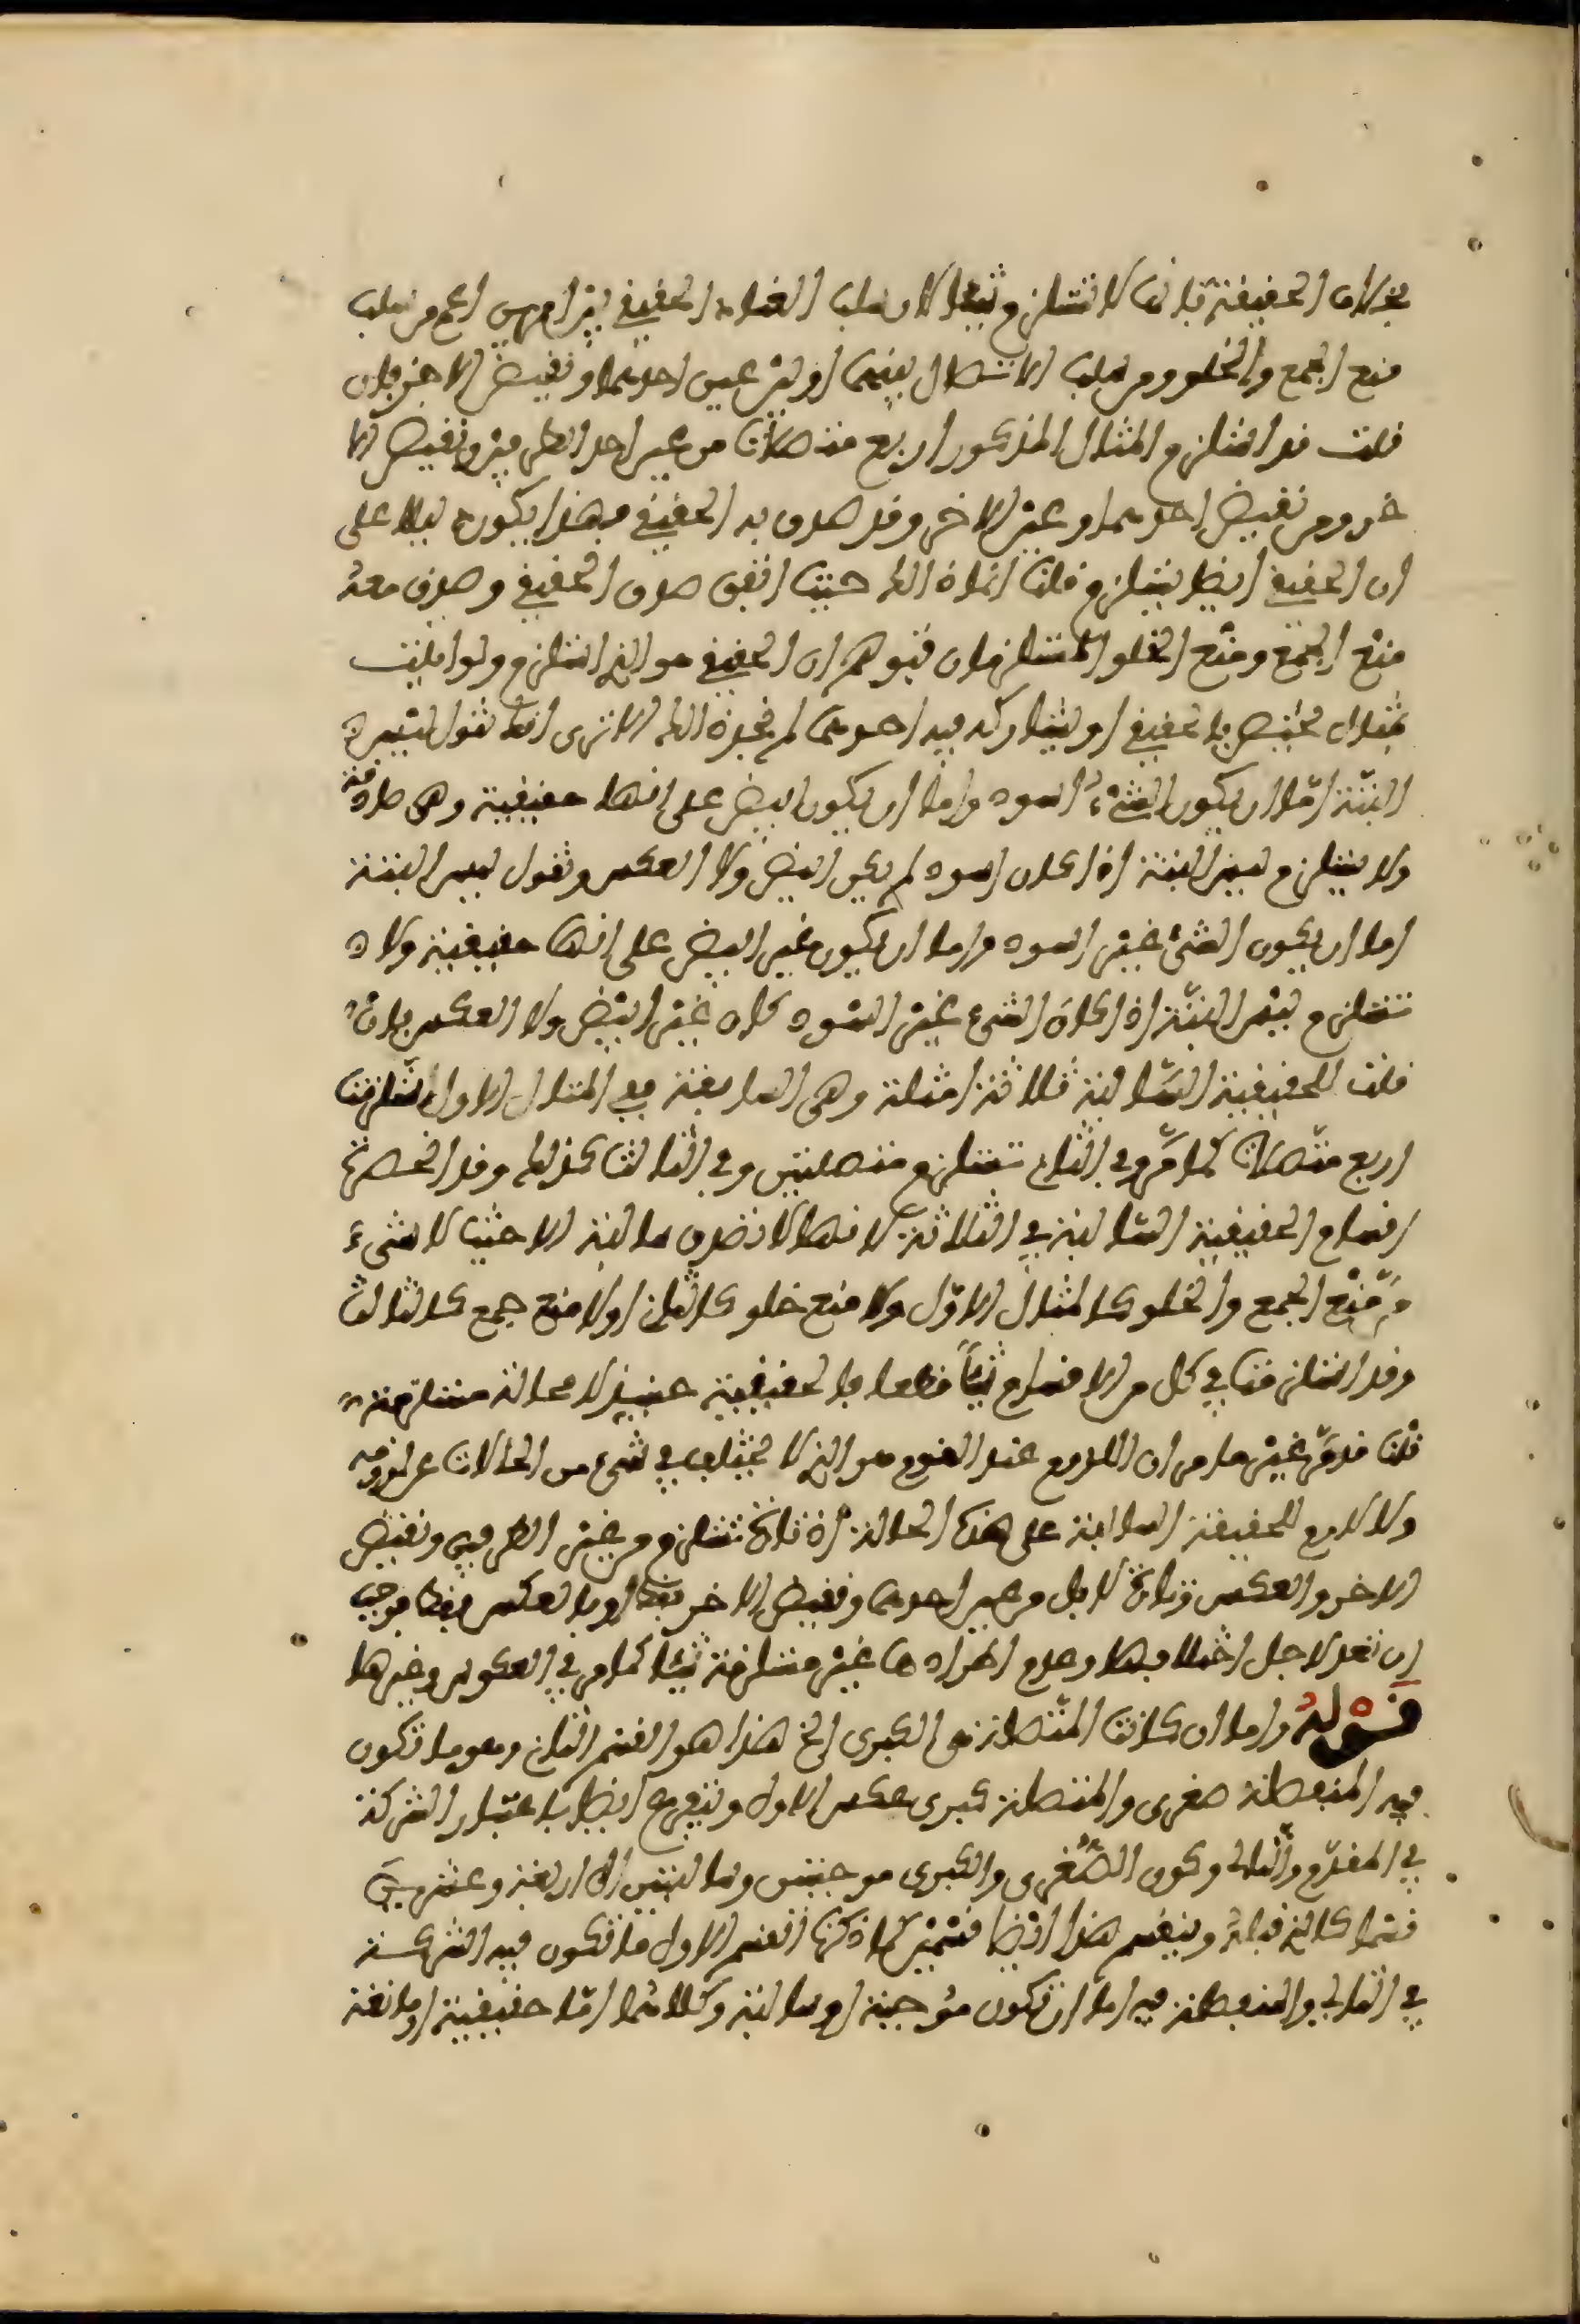 بخلاف الحقيقية فانها لا تستلزم شيئا لان سلب العناد الحقيقي بين امرين اعم من سلب
منع الجمع والخلو ومن سلب الاتصال بينهما او بين عين احدهما ونقيض الاخر فان
قلت قد استلزم المثال المذكور اربع متصلات من عين احد الطرفين ونقيض الا
خر ومن نقيض احدهما وعين الاخر وقد صدق به الحقيقي فهذا يكون دليلا على
ان الحقيقي ايضا يستلزم قلت انما ذالك حيث اتفق صدق الحقيقي وصدق معه
منع الجمع ومنع الخلو المستلزمان فتوهم ان الحقيقي هو الذي استلزم ولو اتيت
بمثال مختص بالحقيقي او يشاركه فيه احدهما لم تجد ذالك الا ترى انك تقول ليس
البتة اما ان يكون الشيء اسود واما ان يكون ابيض على انها حقيقية وهي صادقة
ولا يستلزم ليس البتة اذا كان اسود لم يكن ابيض ولا العكس وتقول ليس البتة
اما ان يكون الشيء غير اسود واما ان يكون غير ابيض على انها حقيقية ولا
تستلزم ليس البتة اذا كان الشيء غير اسود كان غير ابيض ولا العكس فان
قلت للحقيقية السالبة ثلاثة امثلة وهي السابقة ففي المثال الاول استلزمت
اربع متصلات كما مر وفي الثاني تستلزم متصلتين وفي الثالث كذلك وقد انحصرت
اقسام الحقيقية السالبة في الثلاثة لانها لا تصدق سالبة الا حيث لا شيء
من منع الجمع والخلو كالمثال الاول ولا منع خلو كالثاني او لا منع جمع كالثالث
وقد استلزمت في كل من الاقسام شيئا قطعا فالحقيقية حينئذ لا محالة مستلزمة
قلت قد مر غير ما مرة ان اللازم عند القوم هو الذي لا يختلف في شيء من الحالات عن ملزومه
ولا لازم للحقيقية السالبة على هذه الحالة اذ تارة تستلزم من عين الطرفين ونقيض
الاخر والعكس وتارة لا بل من عين احدهما ونقيض الاخر فقط او بالعكس فقط فوجب
ان تعد لاجل اختلافها وعدم اطرادها غير مستلزمة شيئا كما مر في العكوس وغيرها
قوله واما ان كانت المتصلة هي الكبرى الخ هذا هو القسم الثاني وهو ما تكون
فيه المنفصلة صغرى والمتصلة كبرى عكس الاول ويتفرع ايضا باعتبار الشركة
في المقدم والتالي وكون الصغرى والكبرى موجبتين وسالبتين الى اربعة وعشرين
قسما كالذي قبله وينقسم هذا ايضا قسمين كما ذكرنا القسم الاول ما تكون فيه الشركة
في التالي والمنفصلة فيه اما ان تكون موجبة او سالبة وكلاهما اما حقيقية او مانعة